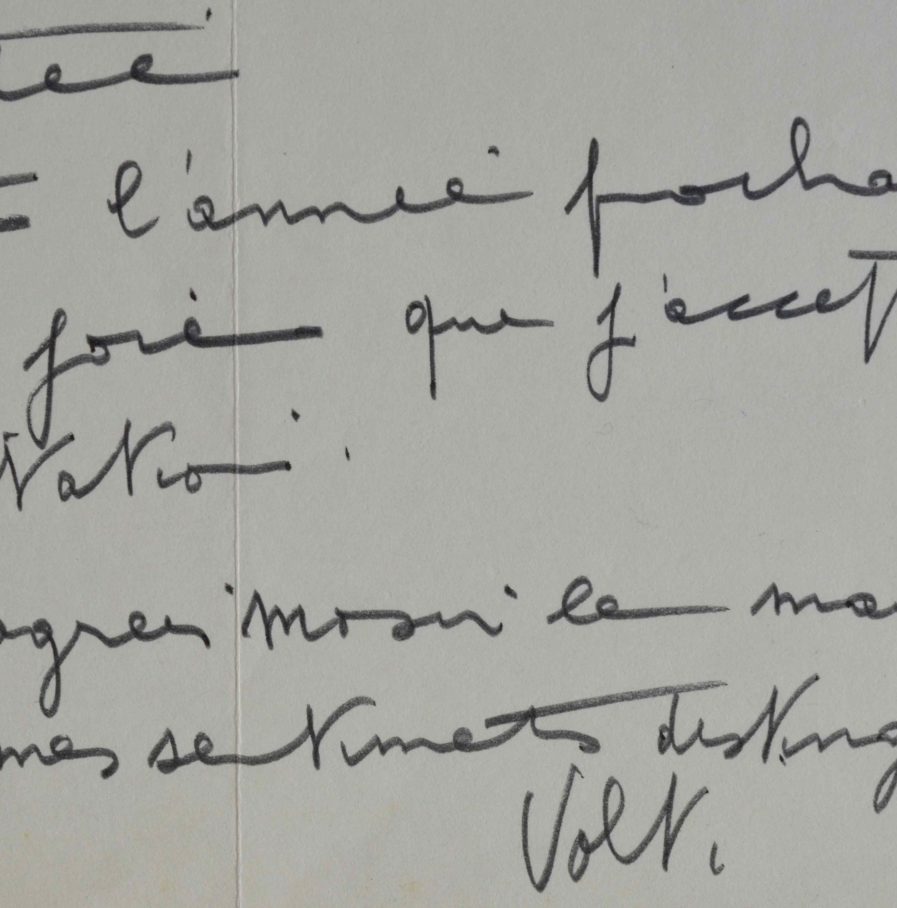 tée
= l'année pocha
joie que j'accept
tation.
agreer mosir le ma
mes sentimets disting
Volt.